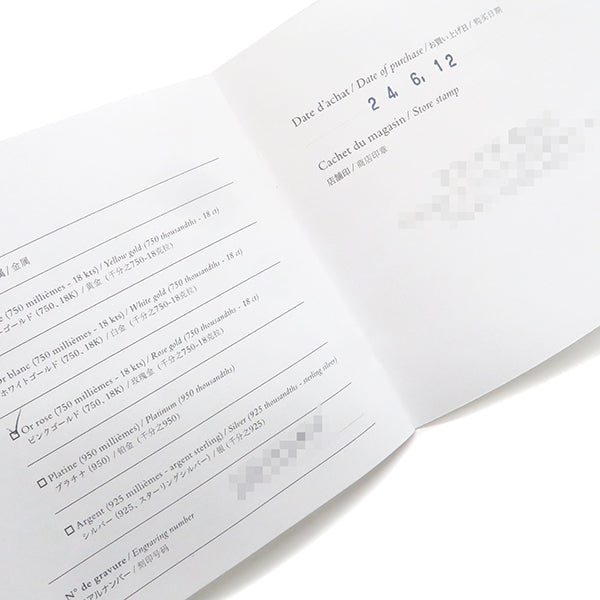 属/金属
(750 millièmes - 18 kts) / Yellow gold (750 thousandths - 18 ct)
ゴールド (750、18K) / 黄金 (千分之750-18克拉)
r blanc (750 millièmes - 18 kts) / White gold (750 thousandths - 18 ct)
ホワイトゴールド (750、18K) / 白金 (千分之750-18克拉)
Or rose (750 millièmes - 18 kts) / Rose gold (750 thousandths - 18 ct)
ピンクゴールド (750、18K) / 玫瑰金 (千分之750-18克拉)
Platine (950 millièmes) / Platinum (950 thousandths)
プラチナ (950) / 铂金 (千分之950)
Argent (925 millièmes - argent sterling) / Silver (925 thousandths - sterling silver)
シルバー (925、スターリングシルバー) / 银 (千分之925)
N° de gravure / Engraving number
アルナンバー / 刻印号码
Date d'achat / Date of purchase / お買い上げ日 / 购买日期
24. 6. 12
Cachet du magasin / Store stamp
店舗印 / 商店印章